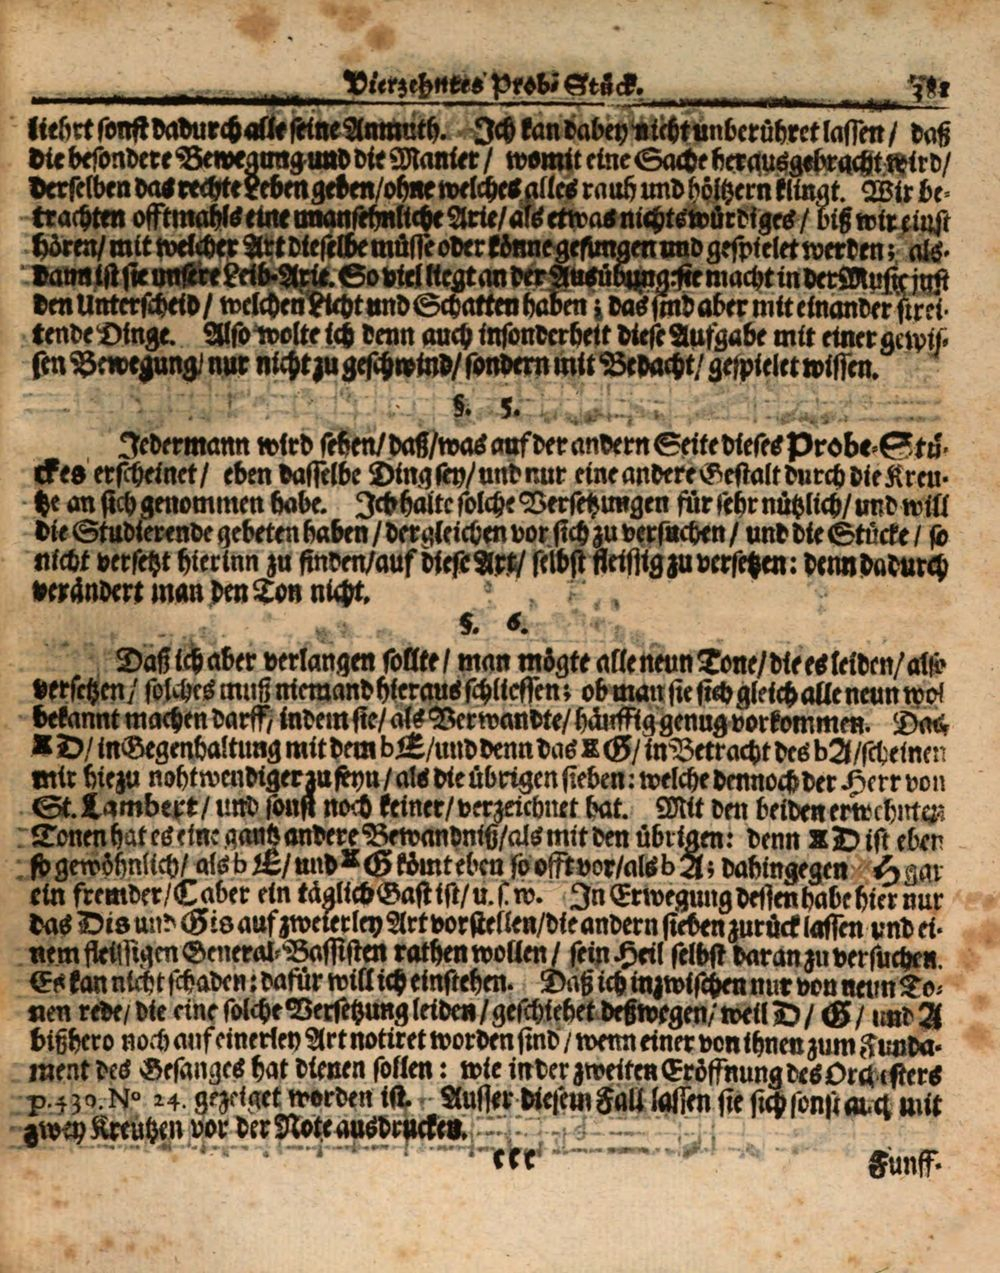 Vierzehntes Prob-Stück. 381
liehrt sonst dadurch alle seine Anmuth. Ich kan dabey nicht unberühret lassen / daß
die besondere Bewegung und die Manier / womit eine Sache herausgebracht wird/
derselben das rechte Leben geben/ohne welches alles rauh und höltzern klingt. Wir be-
trachten offtmahls eine unansehnliche Arie/als etwas nichtswürdiges / biß wir einst
hören/ mit welcher Art dieselbe müsse oder könne gesungen und gespielet werden; als-
dann ist sie unsere Leib-Arie. So viel liegt an der Ausübung: sie macht in der Music just
den Unterscheid / welchen Licht und Schatten haben; das sind aber mit einander strei-
tende Dinge. Also wolte ich denn auch insonderheit diese Aufgabe mit einer gewis-
sen Bewegung/ nur nicht zu geschwind/ sondern mit Bedacht/ gespielet wissen.
§. 5.
Jedermann wird sehen/daß/was auf der andern Seite dieses Probe-Stü-
ckes erscheinet/ eben dasselbe Ding sey/und nur eine andere Gestalt durch die Kreu-
tze an sich genommen habe. Ich halte solche Versetzungen für sehr nützlich/ und will
die Studierende gebeten haben / dergleichen vor sich zu versuchen / und die Stücke / so
nicht versetzt hierinn zu finden/auf diese Art/ selbst fleissig zu versetzen: denn dadurch
verändert man den Ton nicht.
§. 6.
Daß ich aber verlangen sollte / man mögte alle neun Tone/die es leiden/also
versetzen / solches muß niemand hieraus schliessen; ob man sie sich gleich alle neun wol
bekannt machen darff/ indem sie/ als Verwandte/ häuffig genug vorkommen. Das
⌗D/ in Gegenhaltung mit dem bE/und denn das ⌗G/ in Betracht des bA/scheinen
mir hiezu nohtwendiger zu seyn/als die übrigen sieben: welche dennoch der Herr von
St. Lambert/ und sonst noch keiner/ verzeichnet hat. Mit den beiden erwehnten
Tonen hat es eine gantz andere Bewandniß/als mit den übrigen: denn ⌗D ist eben
so gewöhnlich/ als bE/ und ⌗G kömt eben so offt vor/als bA; dahingegen H gar
ein fremder/C aber ein täglich Gast ist/ u. s. w. In Erwegung dessen habe hier nur
das Dis und Gis auf zweierley Art vorstellen/die andern sieben zurück lassen und ei-
nem fleissigen General-Bassisten rathen wollen / sein Heil selbst daran zu versuchen.
Es kan nicht schaden; dafür will ich einstehen. Daß ich inzwischen nur von neun To-
nen rede/ die eine solche Versetzung leiden/ geschiehet deßwegen/ weil D / G / und A
bißhero noch auf einerley Art notiret worden sind / wenn einer von ihnen zum Funda-
ment des Gesanges hat dienen sollen: wie in der zweiten Eröffnung des Orchesters
p. 430. N° 24. gezeiget worden ist. Ausser diesem Fall lassen sie sich sonst auch mit
zwey Kreutzen vor der Note ausdrucken.
ccc Funff-